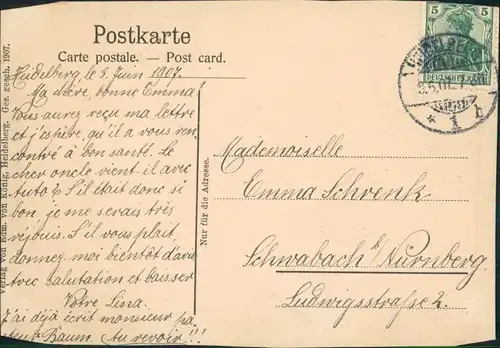 Postkarte
Carte postale. — Post card.
Heidelberg, le 5. Juin 1907.
Ma chère, bonne Emma!
Vous aurez reçu ma lettre
et j'eshère, qu'il a vous ren-
contré à bon santé. Le
cher oncle vient il avec
Auto? S'il était donc si
bon, je me serais très
réjouis. S'il vous plaît
donnez moi bientôt d'avis
avec salutation et baisser
Votre Lina.
J'ai déjà écrit monsieur
Baum. Au revoir!!!
Verlag von Edm. von König, Heidelberg. Ges. gesch. 1907.
Nur für die Adresse.
5 5
DEUTSCHES REICH
HEIDELBERG
* 1 h
Mademoiselle
Emma Schrenk
Schwabach b/Nürnberg
Ludwigsstraße 2.